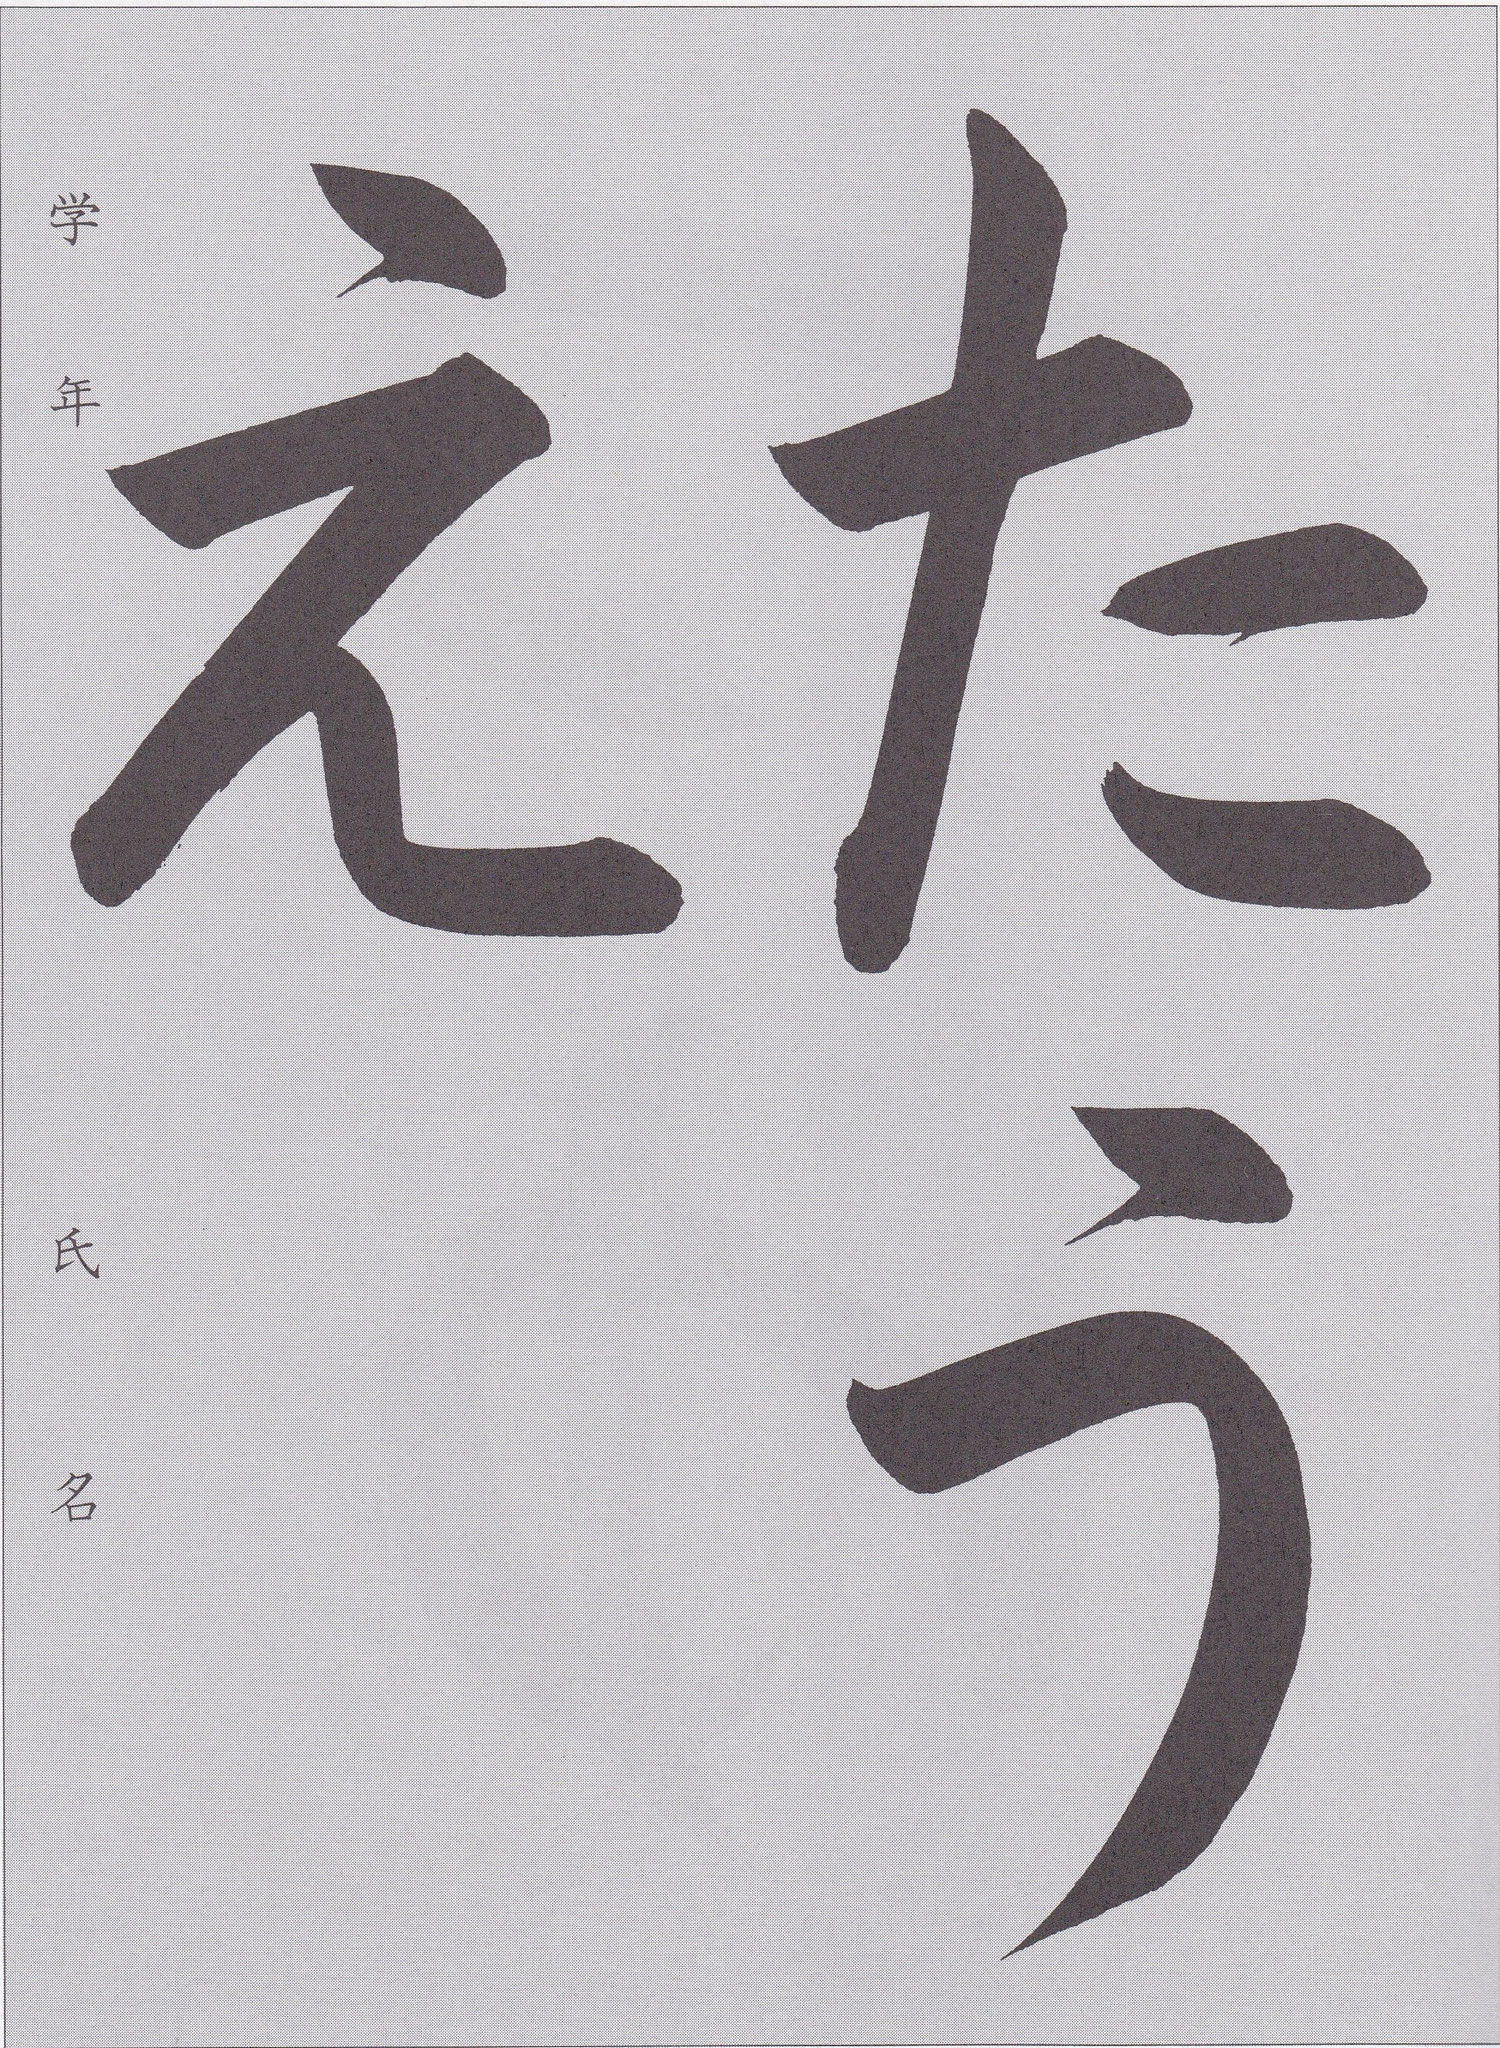 たう
え
学年 氏名